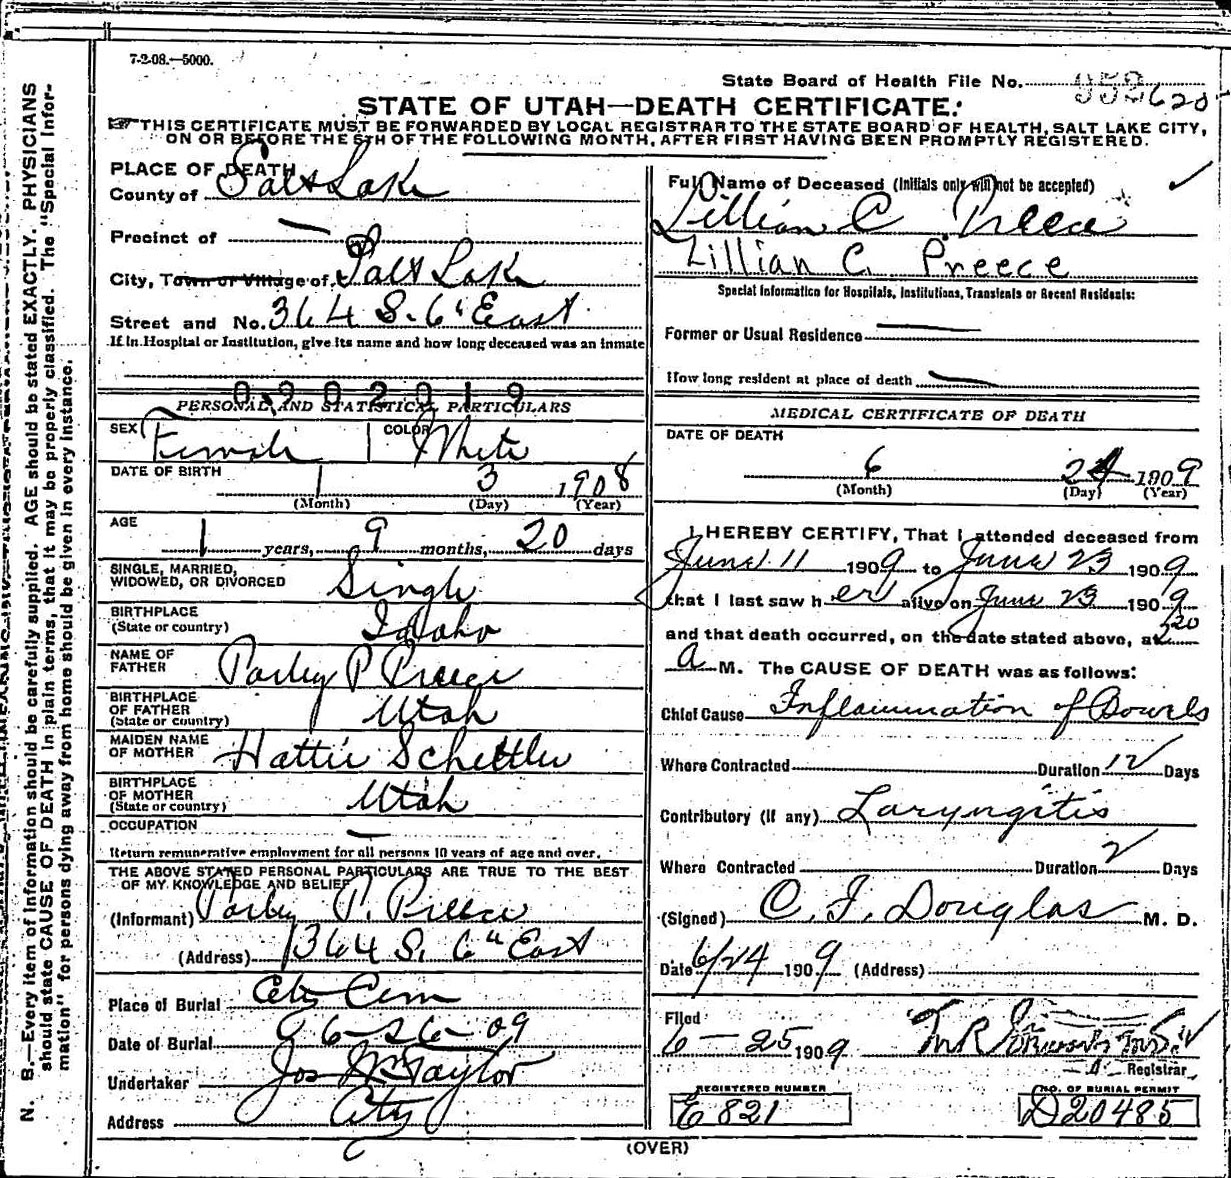 7-2-08.—5000.
State Board of Health File No. 952 620
STATE OF UTAH—DEATH CERTIFICATE.
THIS CERTIFICATE MUST BE FORWARDED BY LOCAL REGISTRAR TO THE STATE BOARD OF HEALTH, SALT LAKE CITY,
ON OR BEFORE THE 5TH OF THE FOLLOWING MONTH, AFTER FIRST HAVING BEEN PROMPTLY REGISTERED.
PLACE OF DEATH
County of Salt Lake
Precinct of —
City, Town or Village of Salt Lake
Street and No. 364 S. 6" East
If in Hospital or Institution, give its name and how long deceased was an inmate
0902019
PERSONAL AND STATISTICAL PARTICULARS
SEX Female COLOR White
DATE OF BIRTH 1 3 1908
(Month) (Day) (Year)
AGE 1 years, 9 months, 20 days
SINGLE, MARRIED,
WIDOWED, OR DIVORCED Single
BIRTHPLACE
(State or country) Idaho
NAME OF
FATHER Parley P Preece
BIRTHPLACE
OF FATHER
(State or country) Utah
MAIDEN NAME
OF MOTHER Hattie Schettler
BIRTHPLACE
OF MOTHER
(State or country) Utah
OCCUPATION —
Return remunerative employment for all persons 10 years of age and over.
THE ABOVE STATED PERSONAL PARTICULARS ARE TRUE TO THE BEST
OF MY KNOWLEDGE AND BELIEF
(Informant) Parley P. Preece
(Address) 364 S. 6" East
Place of Burial City Cem
Date of Burial 6-26-09
Undertaker Jos Wm Taylor
Address City
Full Name of Deceased (Initials only will not be accepted)
Lillian C Preece
Lillian C. Preece
Special Information for Hospitals, Institutions, Transients or Recent Residents:
Former or Usual Residence —
How long resident at place of death —
MEDICAL CERTIFICATE OF DEATH
DATE OF DEATH
6 24 1909
(Month) (Day) (Year)
I HEREBY CERTIFY, That I attended deceased from
June 11 1909 to June 23 1909
that I last saw her alive on June 23 1909
and that death occurred, on the date stated above, at 2 20
a M. The CAUSE OF DEATH was as follows:
Chief Cause Inflammation of Bowels
Where Contracted Duration 12 Days
Contributory (if any) Laryngitis
Where Contracted Duration 2 Days
(Signed) C. F. Douglas M. D.
Date 6/24 1909 (Address)
Filed
6-25 1909
Registrar
REGISTERED NUMBER
E 821
NO. OF BURIAL PERMIT
D20485
(OVER)
N. B.—Every item of information should be carefully supplied. AGE should be stated EXACTLY. PHYSICIANS
should state CAUSE OF DEATH in plain terms, that it may be properly classified. The "Special Infor-
mation" for persons dying away from home should be given in every instance.